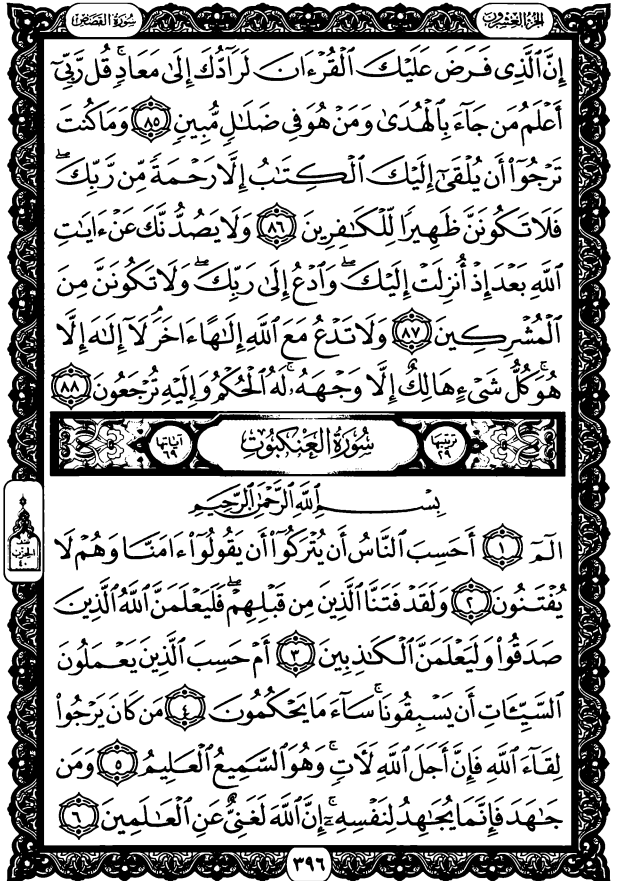 الجزء العشرون
سورة القصص
إِنَّ ٱلَّذِى فَرَضَ عَلَيْكَ ٱلْقُرْءَانَ لَرَآدُّكَ إِلَىٰ مَعَادٍۢ ۚ قُل رَّبِّىٓ
أَعْلَمُ مَن جَآءَ بِٱلْهُدَىٰ وَمَنْ هُوَ فِى ضَلَـٰلٍۢ مُّبِينٍۢ ٨٥ وَمَا كُنتَ
تَرْجُوٓا۟ أَن يُلْقَىٰٓ إِلَيْكَ ٱلْكِتَـٰبُ إِلَّا رَحْمَةًۭ مِّن رَّبِّكَ ۖ
فَلَا تَكُونَنَّ ظَهِيرًۭا لِّلْكَـٰفِرِينَ ٨٦ وَلَا يَصُدُّنَّكَ عَنْ ءَايَـٰتِ
ٱللَّهِ بَعْدَ إِذْ أُنزِلَتْ إِلَيْكَ ۖ وَٱدْعُ إِلَىٰ رَبِّكَ ۖ وَلَا تَكُونَنَّ مِنَ
ٱلْمُشْرِكِينَ ٨٧ وَلَا تَدْعُ مَعَ ٱللَّهِ إِلَـٰهًا ءَاخَرَ ۘ لَآ إِلَـٰهَ إِلَّا
هُوَ ۚ كُلُّ شَىْءٍ هَالِكٌ إِلَّا وَجْهَهُۥ ۚ لَهُ ٱلْحُكْمُ وَإِلَيْهِ تُرْجَعُونَ ٨٨
ترتيبها ٢٩ سُورَةُ العَنكَبُوتِ آياتها ٦٩
بِسْمِ ٱللَّهِ ٱلرَّحْمَـٰنِ ٱلرَّحِيمِ
الٓمٓ ١ أَحَسِبَ ٱلنَّاسُ أَن يُتْرَكُوٓا۟ أَن يَقُولُوٓا۟ ءَامَنَّا وَهُمْ لَا
يُفْتَنُونَ ٢ وَلَقَدْ فَتَنَّا ٱلَّذِينَ مِن قَبْلِهِمْ ۖ فَلَيَعْلَمَنَّ ٱللَّهُ ٱلَّذِينَ
صَدَقُوا۟ وَلَيَعْلَمَنَّ ٱلْكَـٰذِبِينَ ٣ أَمْ حَسِبَ ٱلَّذِينَ يَعْمَلُونَ
ٱلسَّيِّـَٔاتِ أَن يَسْبِقُونَا ۚ سَآءَ مَا يَحْكُمُونَ ٤ مَن كَانَ يَرْجُوا۟
لِقَآءَ ٱللَّهِ فَإِنَّ أَجَلَ ٱللَّهِ لَـَٔاتٍۢ ۚ وَهُوَ ٱلسَّمِيعُ ٱلْعَلِيمُ ٥ وَمَن
جَـٰهَدَ فَإِنَّمَا يُجَـٰهِدُ لِنَفْسِهِۦٓ ۚ إِنَّ ٱللَّهَ لَغَنِىٌّ عَنِ ٱلْعَـٰلَمِينَ ٦
الحزب
٤٠
٣٩٦